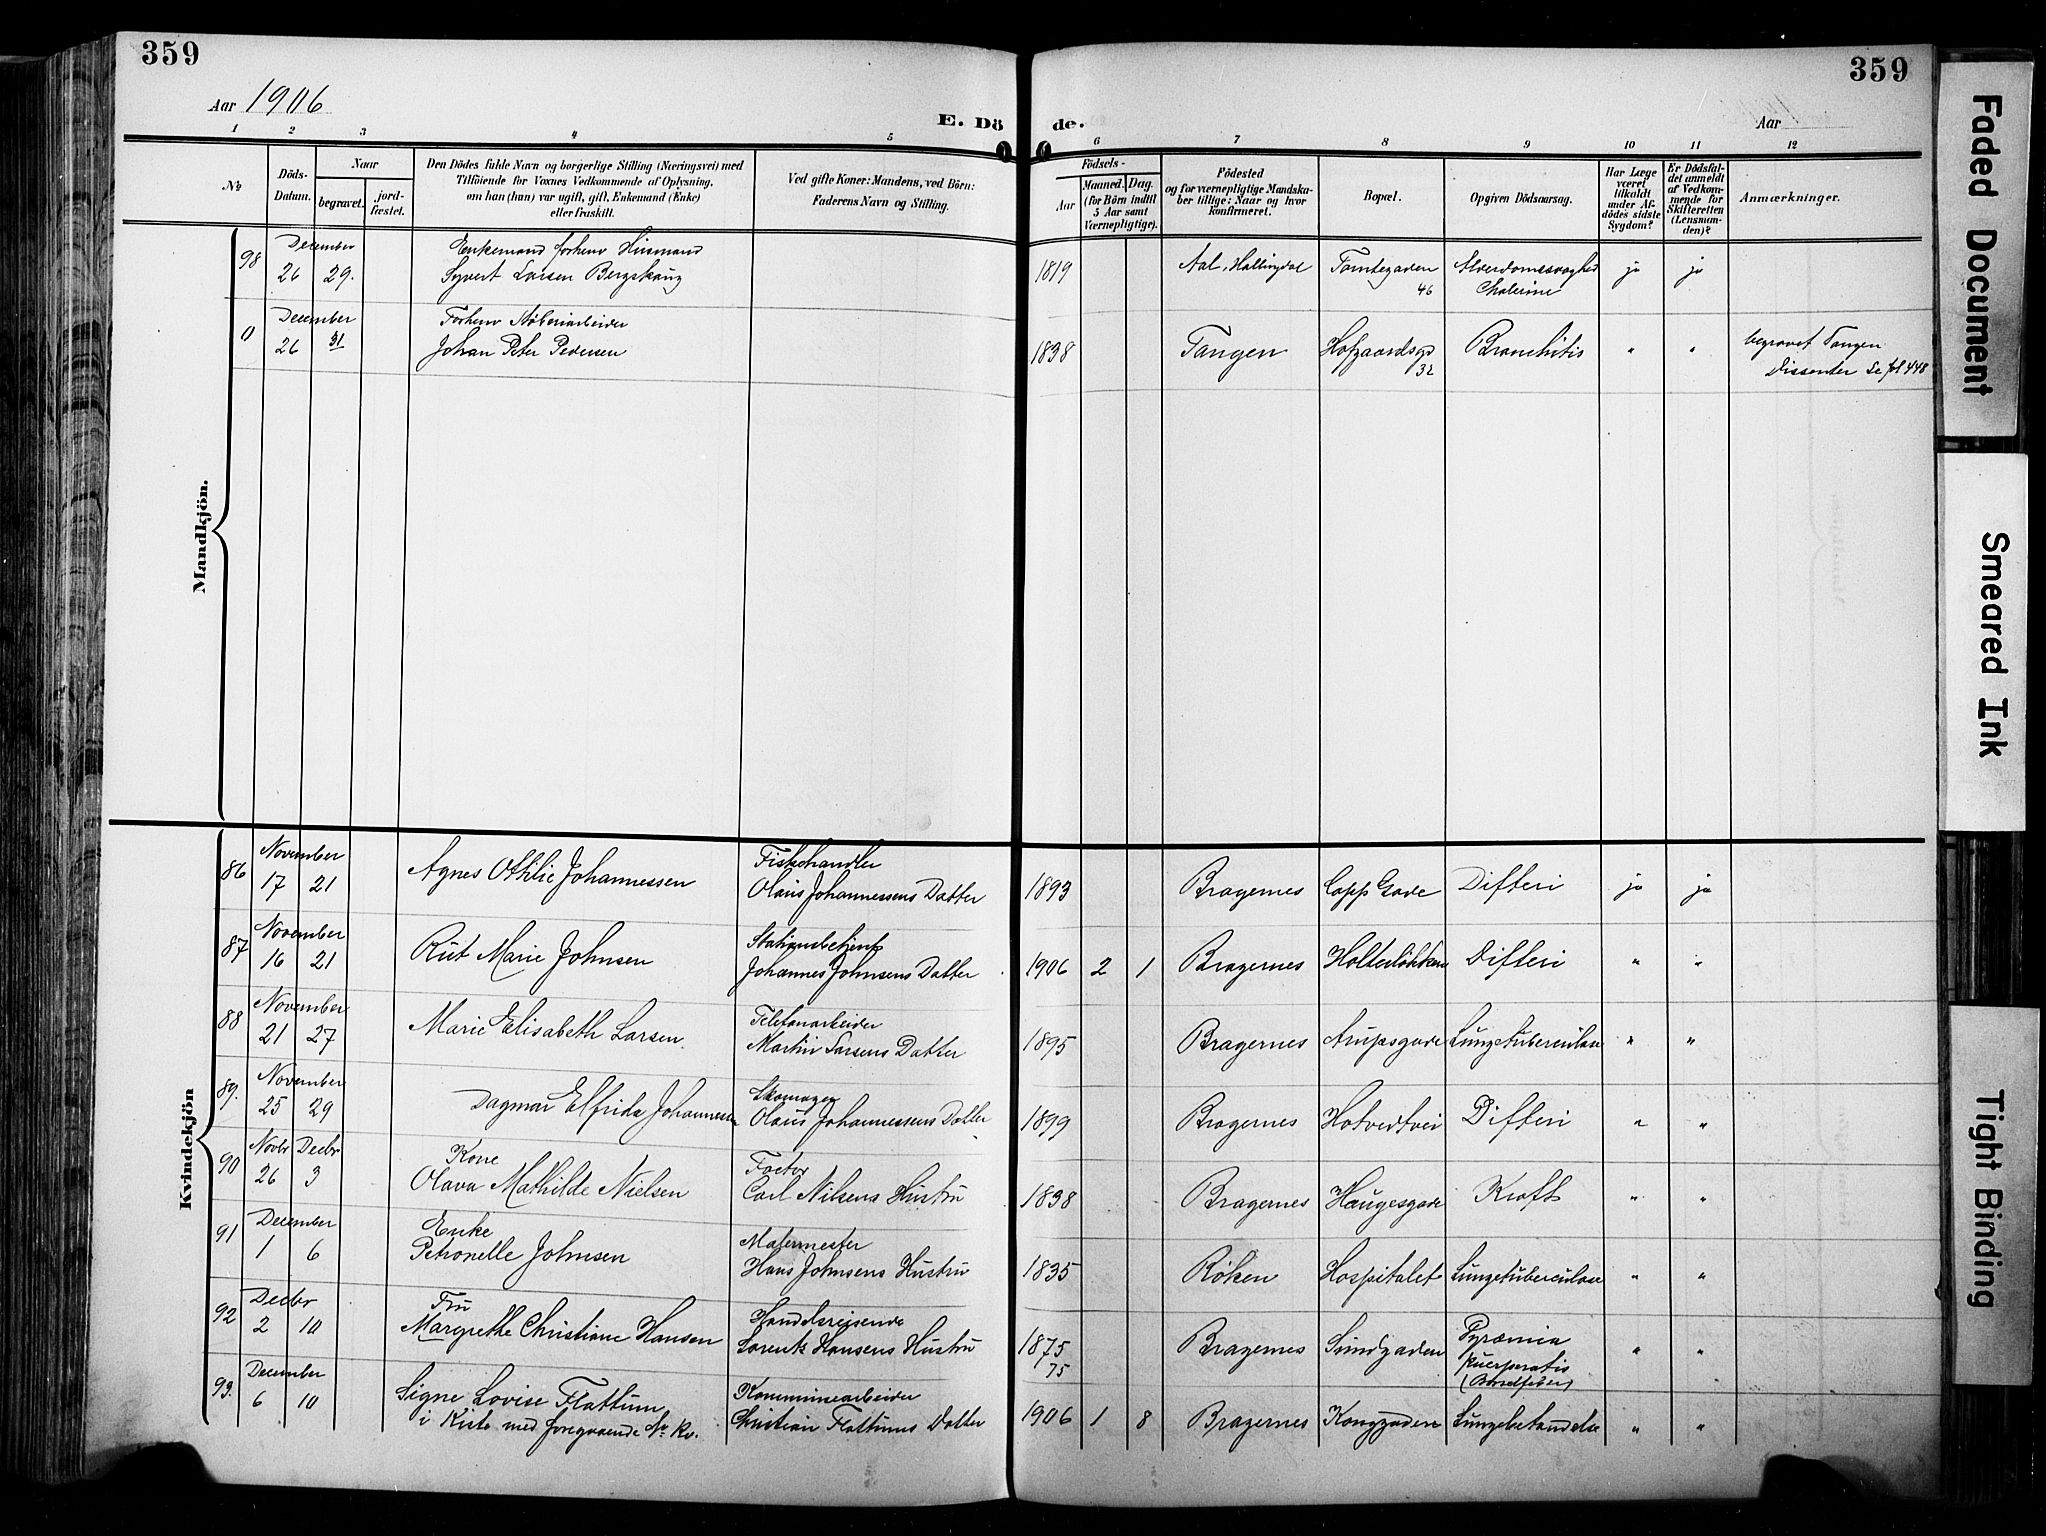 359
359
Aar 1906
E. Dö
de.
Aar
1 2 3 4 5 6 7 8 9 10 11 12
№
Döds-Datum.
Naar
begravet.
jord-fæstet.
Den Dödes fulde Navn og borgerlige Stilling (Næringsvei) med
Tilföiende for Voxnes Vedkommende af Oplysning,
om han (hun) var ugift, gift, Enkemand (Enke)
eller fraskilt.
Ved gifte Koner: Mandens, ved Börn:
Faderens Navn og Stilling.
Födsels-
Aar
Maaned. Dag.
(for Börn indtil
5 Aar samt
Værnepligtige).
Födested
og for værnepligtige Mandska-
ber tillige: Naar og hvor
konfirmeret.
Bopæl.
Opgiven Dödsaarsag.
Har Læge
været
tilkaldt
under Af-
dödes sidste
Sygdom?
Er Dödsfal-
det anmeldt
af Vedkom-
mende for
Skifteretten
(Lensman-
den)?
Anmærkninger.
Mandkjön.
December Enkemand forhenv Husmand
98 26 29. Syvert Larsen Bergskaug 1819 Aal, Hallingdal Tomtegaden 46 Alderdomssvaghed ja ja
Cholerine
December Forhenv Støberiarbeider
0 26 31 Johan Peter Pedersen 1838 Tangen Hofgaardsgd 32 Bronchitis " " begravet Tangen
Dissenter Se fol 448
Kvindekjön
November Fiskehandler
86 17 21 Agnes Othilie Johannessen Olaus Johannessens Datter 1893 Bragernes Capp Gade Difteri ja ja
November Stationsbetjent
87 16 21 Rut Marie Johnsen Johannes Johnsens Datter 1906 2 1 Bragernes Holterløkken Difteri " "
November Telefonarbeider
88 21 27 Marie Elisabeth Larsen. Martin Larsens Datter 1895 Bragernes Arupsgade Lungetuberculose " "
November Skomager
89. 25 29 Dagmar Elfrida Johannessen Olaus Johannessens Datter 1899 Bragernes Hotvedtvei Difteri " "
Novbr Decbr Kone Factor
90 26 3 Olava Mathilde Nielsen Carl Nilsens Hustru 1838 Bragernes Haugesgade Kræft " "
December Enke Malermester
91 1 6 Petronelle Johnsen Hans Johnsens Hustru 1835 Røken Hospitalet Lungetuberculose " "
Decbr Fru Handelsreisende
92 2 10 Margrethe Christiane Hansen Lorentz Hansens Hustru 1875 Bragernes Sundgaden Pyræmia " "
75 puerperalis
(Barselfeber)
December Kommunearbeider
93. 6 10 Signe Lovise Flattum Christian Flattums Datter 1906 1 8 Bragernes Konggaden Lungebetændelse " "
i Kiste med foregaaende No kv.
Faded Document
Smeared Ink
Tight Binding